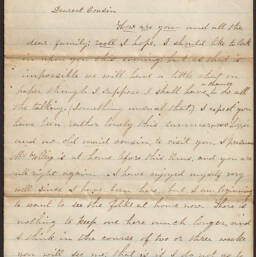 Dearest Cousin
How are you and all the
dear family; well I hope. I should like to look
in upon you this evening but as that is
impossible we will have a little chat on
paper though I suppose I shall have to do all
the talking, (something unusual that) I expect you
have been rather lonely this summer
and no old maid cousin to visit you, I presume
Mr is at home before this time, and you are
all right again. I have enjoyed myself very
well since I have been here, but I am beginning
to want to see the folks at home now. There is
nothing to keep me here much longer and
I think in the course of two or three weeks
you will see me, that is if I do not go to